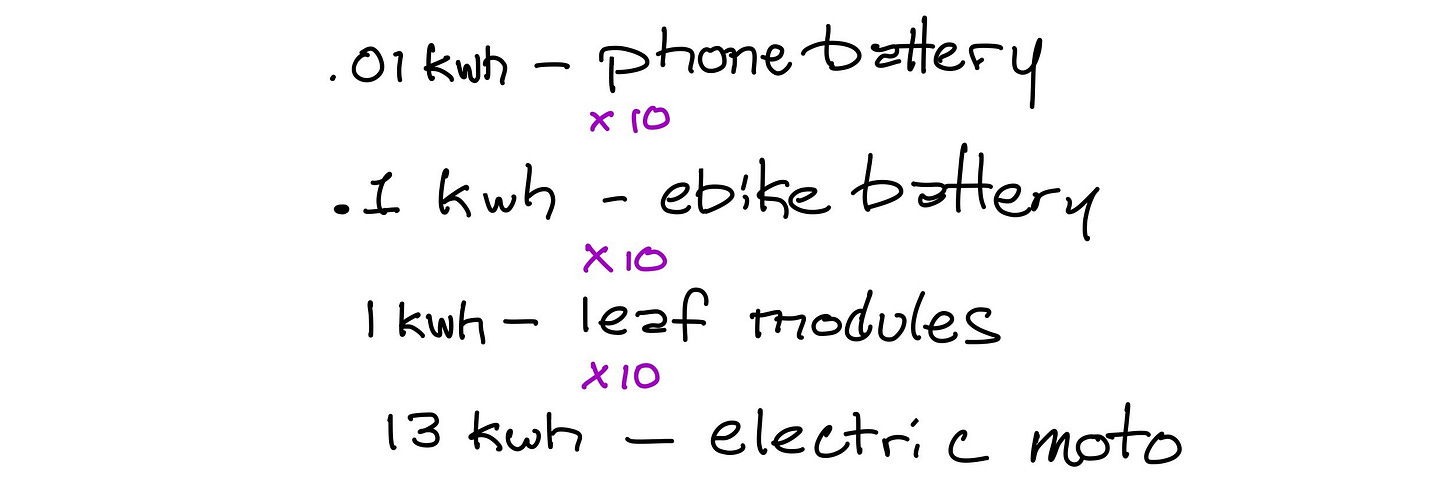 .01 kwh - phone battery
x 10
.1 kwh - ebike battery
x 10
1 kwh - leaf modules
x 10
13 kwh - electric moto